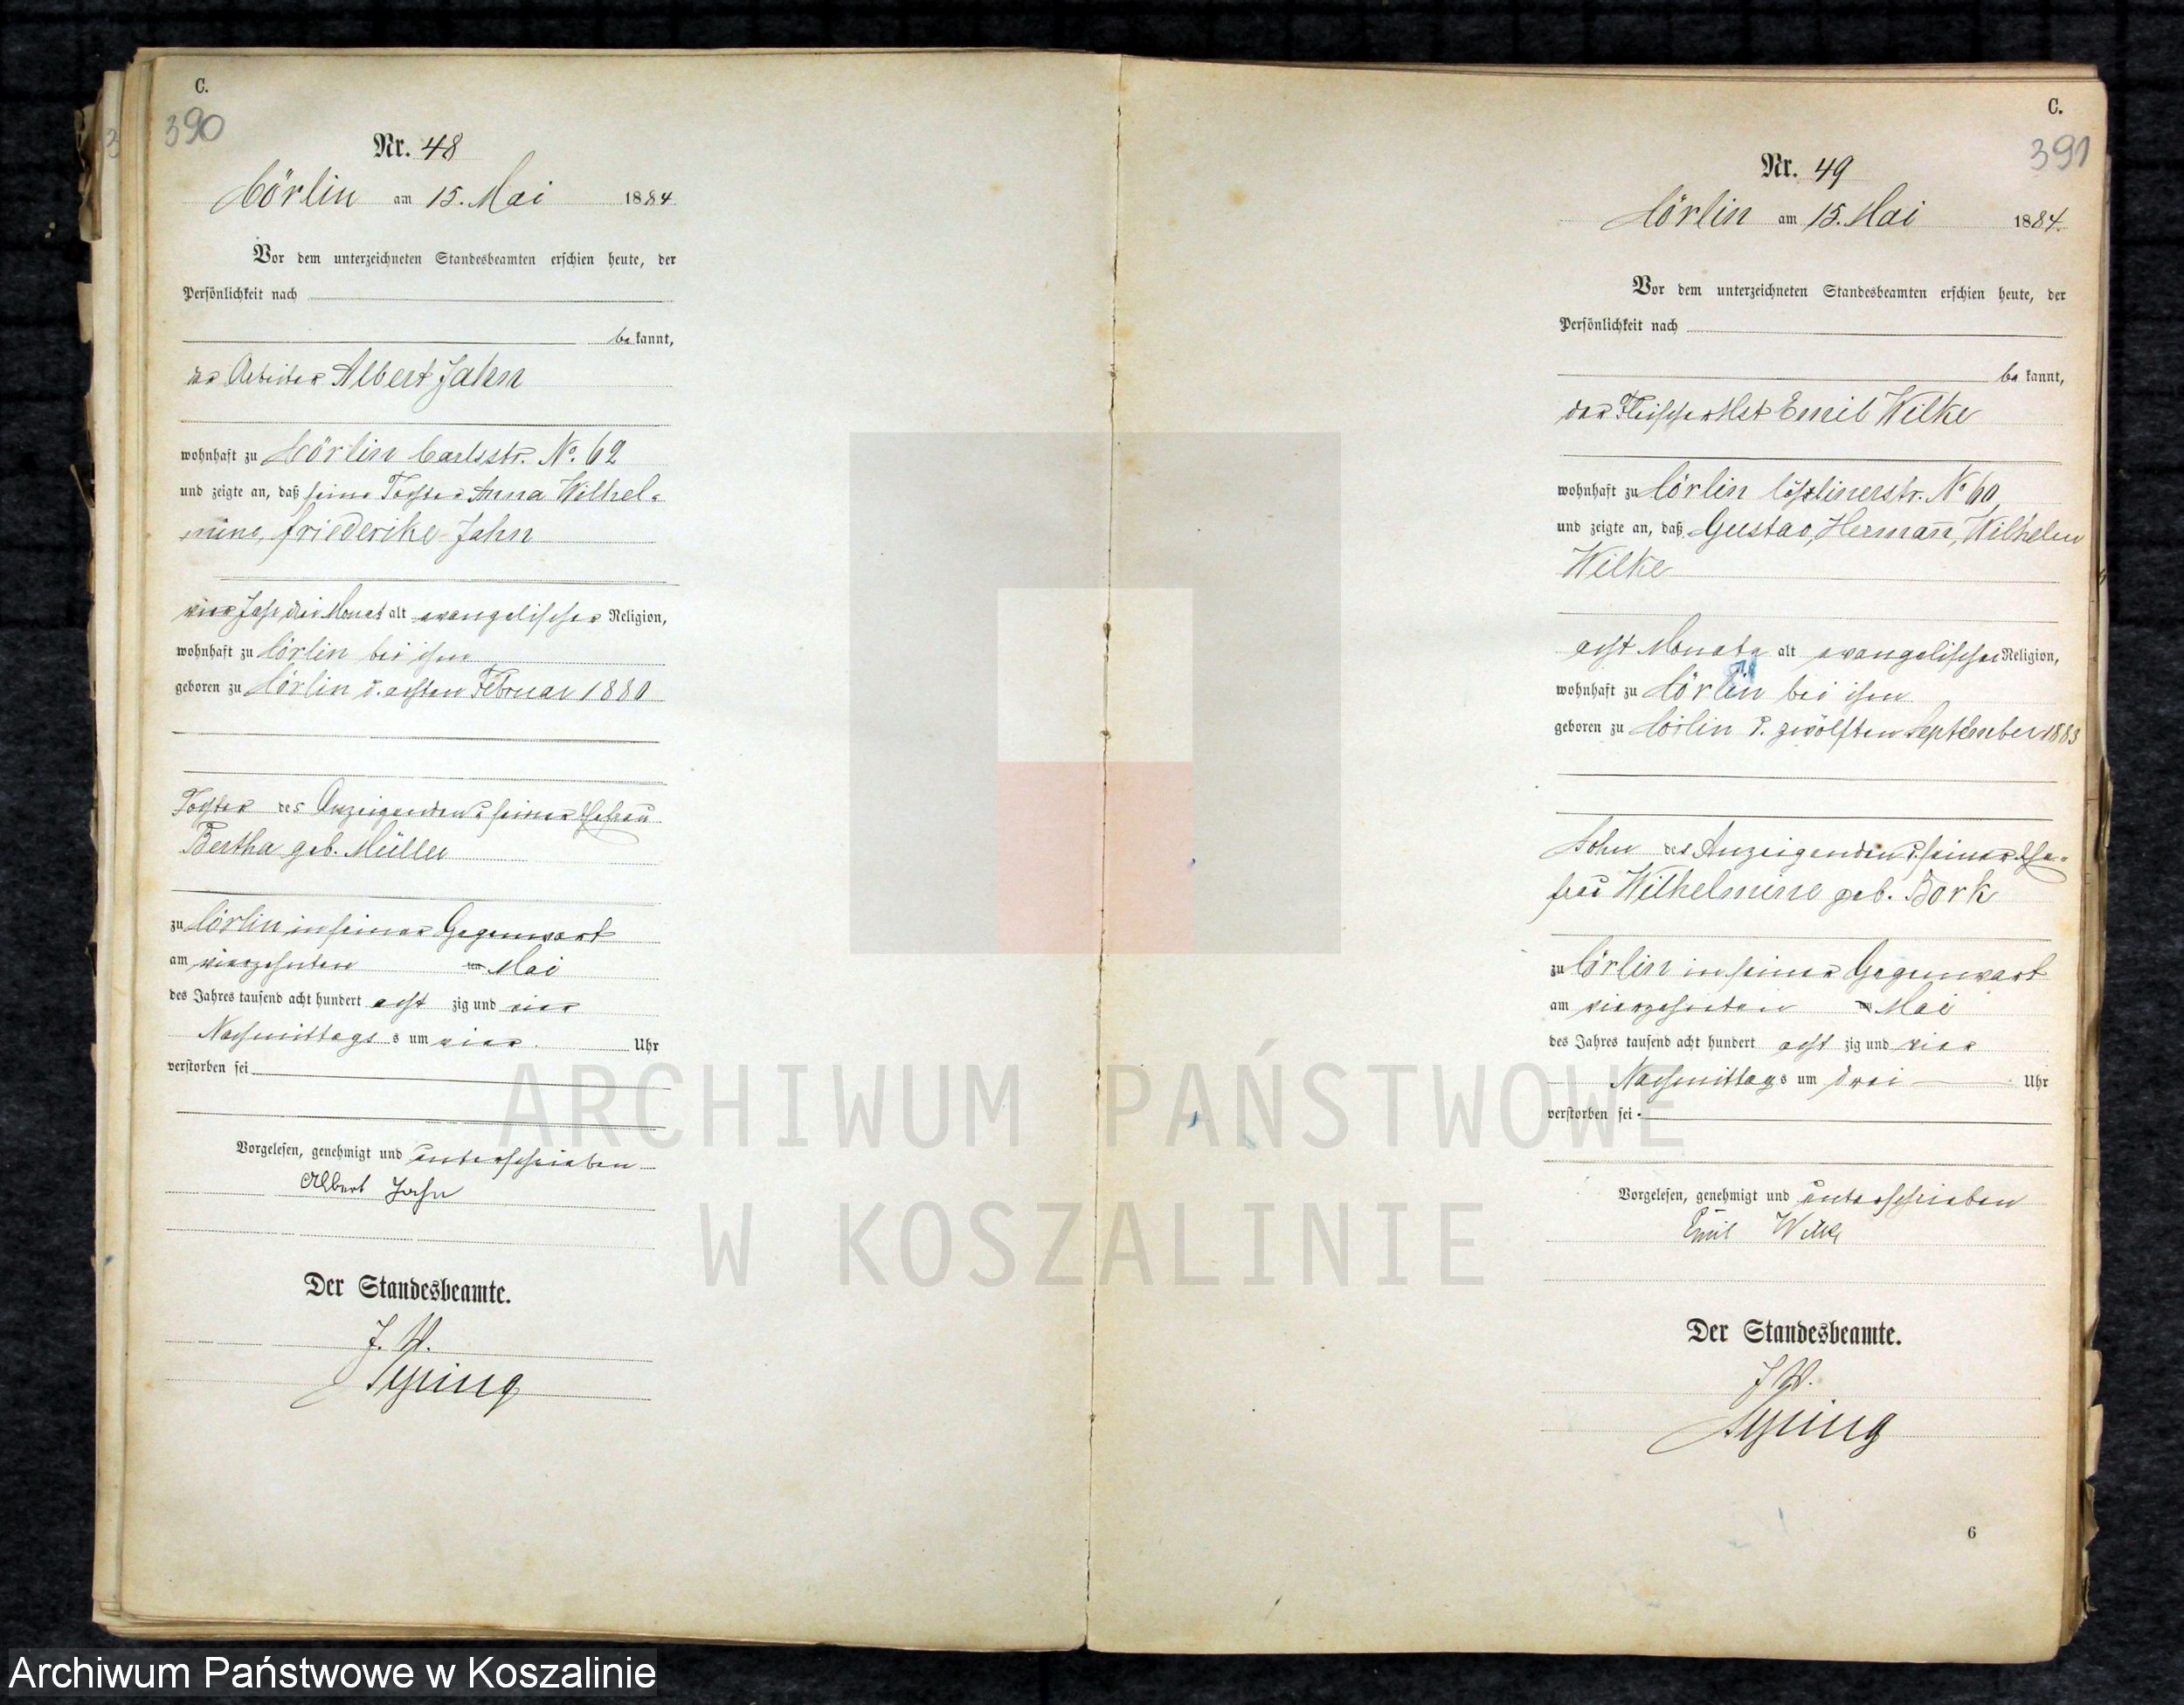 C.
390
Nr. 48
Cörlin am 15. Mai 1884
Vor dem unterzeichneten Standesbeamten erschien heute, der
Persönlichkeit nach
be kannt,
der Arbeiter Albert Jahn
wohnhaft zu Cörlin Carlsstr. No. 62
und zeigte an, daß seine Tochter Anna Wilhel-
mine, Friederike Jahn
vier Jahr drei Monat alt evangelischer Religion,
wohnhaft zu Cörlin bei ihm
geboren zu Cörlin d. achten Februar 1880
Tochter des Anzeigenden u. seiner Ehefrau
Bertha geb. Müller
zu Cörlin in seiner Gegenwart
am vierzehnten ten Mai
des Jahres tausend acht hundert acht zig und vier
Nachmittags s um vier Uhr
verstorben sei
Vorgelesen, genehmigt und unterschrieben
Albert Jahn
Der Standesbeamte.
J. V.
C.
391
Nr. 49
Cörlin am 15. Mai 1884.
Vor dem unterzeichneten Standesbeamten erschien heute, der
Persönlichkeit nach
be kannt,
der Fleischer Mst Emil Wilke
wohnhaft zu Cörlin Cöslinerstr. No 60
und zeigte an, daß Gustav, Hermann, Wilhelm
Wilke
acht Monate alt evangelischer Religion,
wohnhaft zu Cörlin bei ihm
geboren zu Cörlin d. zwölften September 1883
Sohn des Anzeigenden u. seiner Ehe-
frau Wilhelmine geb. Bork
zu Cörlin in seiner Gegenwart
am vierzehnten ten Mai
des Jahres tausend acht hundert acht zig und vier
Nachmittags um drei Uhr
verstorben sei
Vorgelesen, genehmigt und unterschrieben
Emil Wilke
Der Standesbeamte.
J. V.
6
ARCHIWUM PAŃSTWOWE
W KOSZALINIE
Archiwum Państwowe w Koszalinie